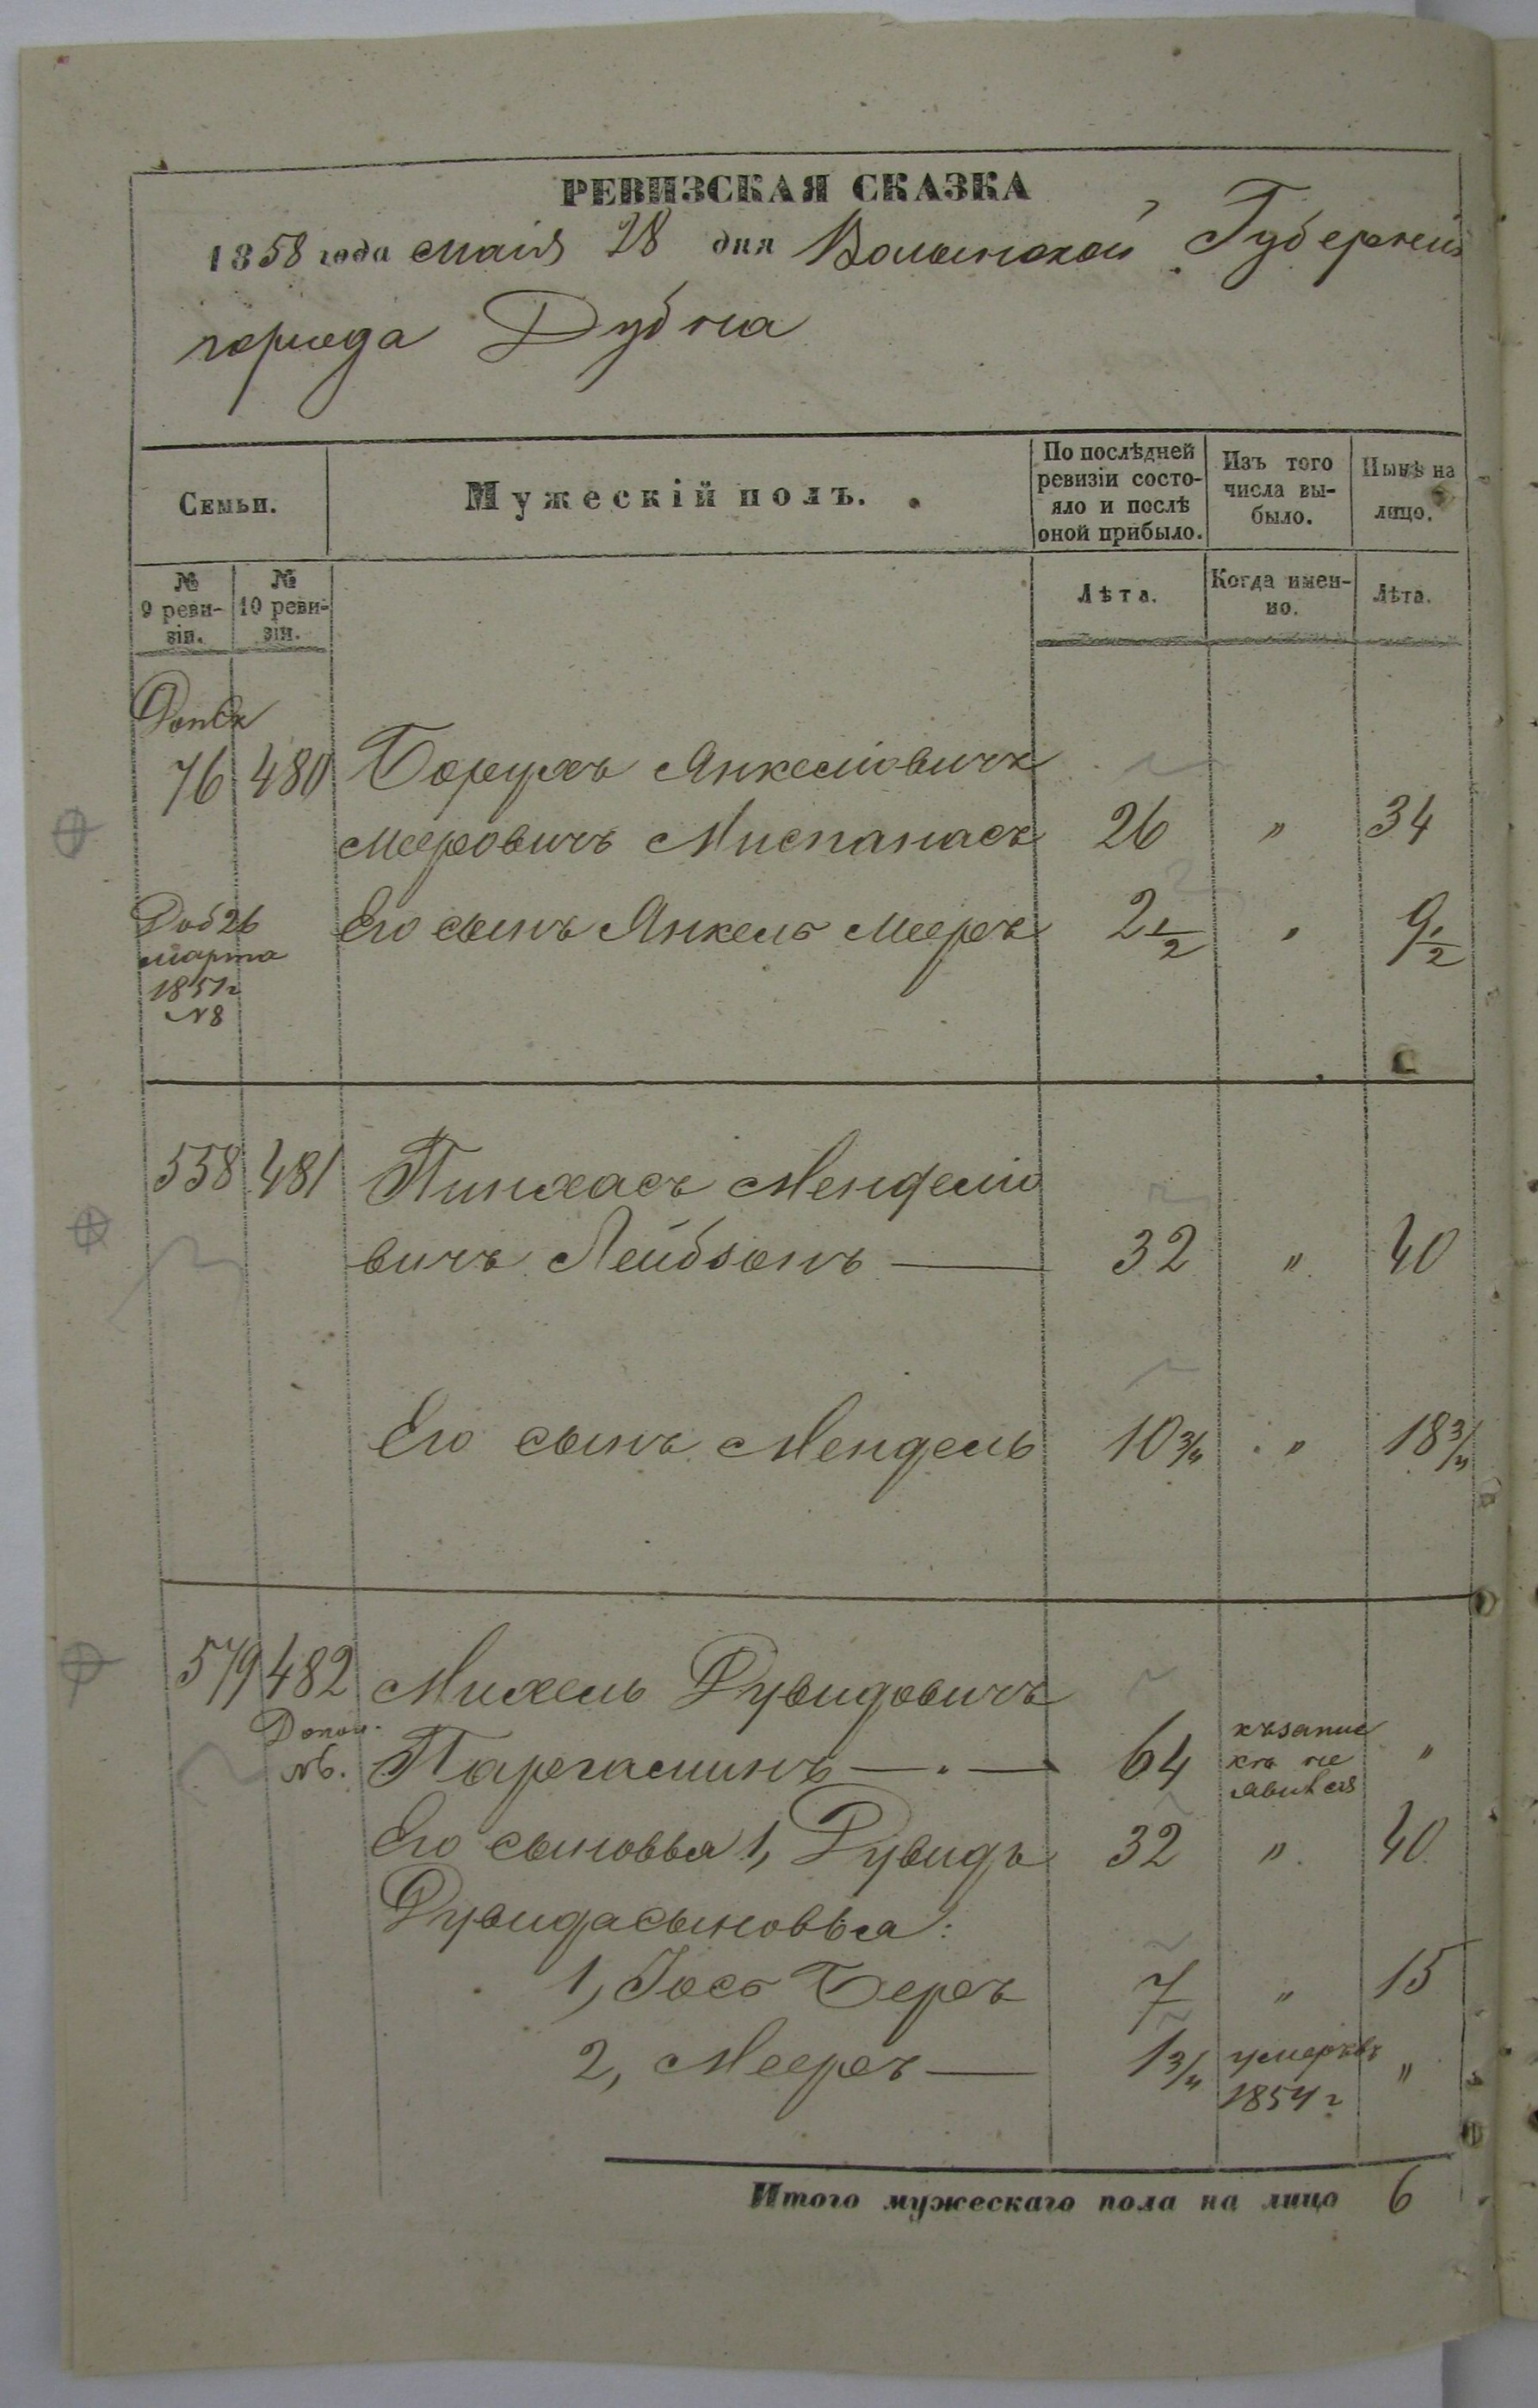 РЕВИЗСКАЯ СКАЗКА
1858 года маія 28 дня Волынской Губерніи
города Дубна
Семьи.
Мужескій полъ.
По послѣдней
ревизіи состо-
яло и послѣ
оной прибыло.
Изъ того
числа вы-
было.
Нынѣ на
лицо.
№
9 реви-
зіи.
№
10 реви-
зіи.
Лѣта.
Когда имен-
но.
Лѣта.
76 480 Борухъ Янкеліовичъ
Мееровичъ 26 " 34
Доб 26
марта
1851 г
N 8
Его сынъ Янкель Мееръ 2 1/2 " 9 1/2
558 481 Пинхасъ Менделіо
вичъ Лейбзонъ — 32 " 40
Его сынъ Мендель 10 3/4 " 18 3/4
579 482 Михель Дувидовичъ
Допол.
№6.
64 не "
Его сыновья 1, Дувидъ 32 " 40
Дувида сыновья:
1, Іось Беръ 7 " 15
2, Мееръ — 1 3/4 умеръ въ "
1854 г
Итого мужескаго пола на лицо 6